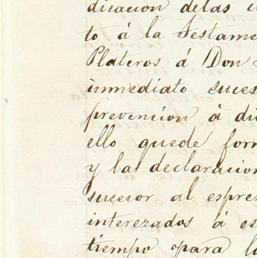 dicacion delas
to á la Testame
Plateros á Don
inmediato suces
prevencion á di
ello quede for
y la declaracion
sucesor al espres
interezados á es
tiempo para l